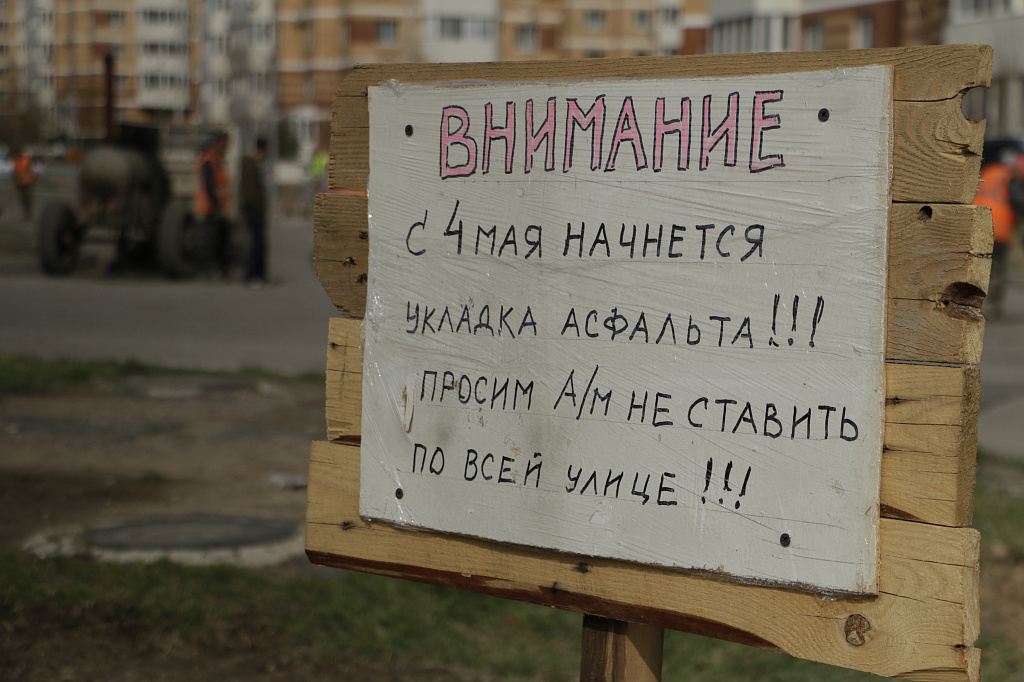 ВНИМАНИЕ
С 4 МАЯ НАЧНЕТСЯ
УКЛАДКА АСФАЛЬТА!!!
ПРОСИМ А/М НЕ СТАВИТЬ
ПО ВСЕЙ УЛИЦЕ!!!